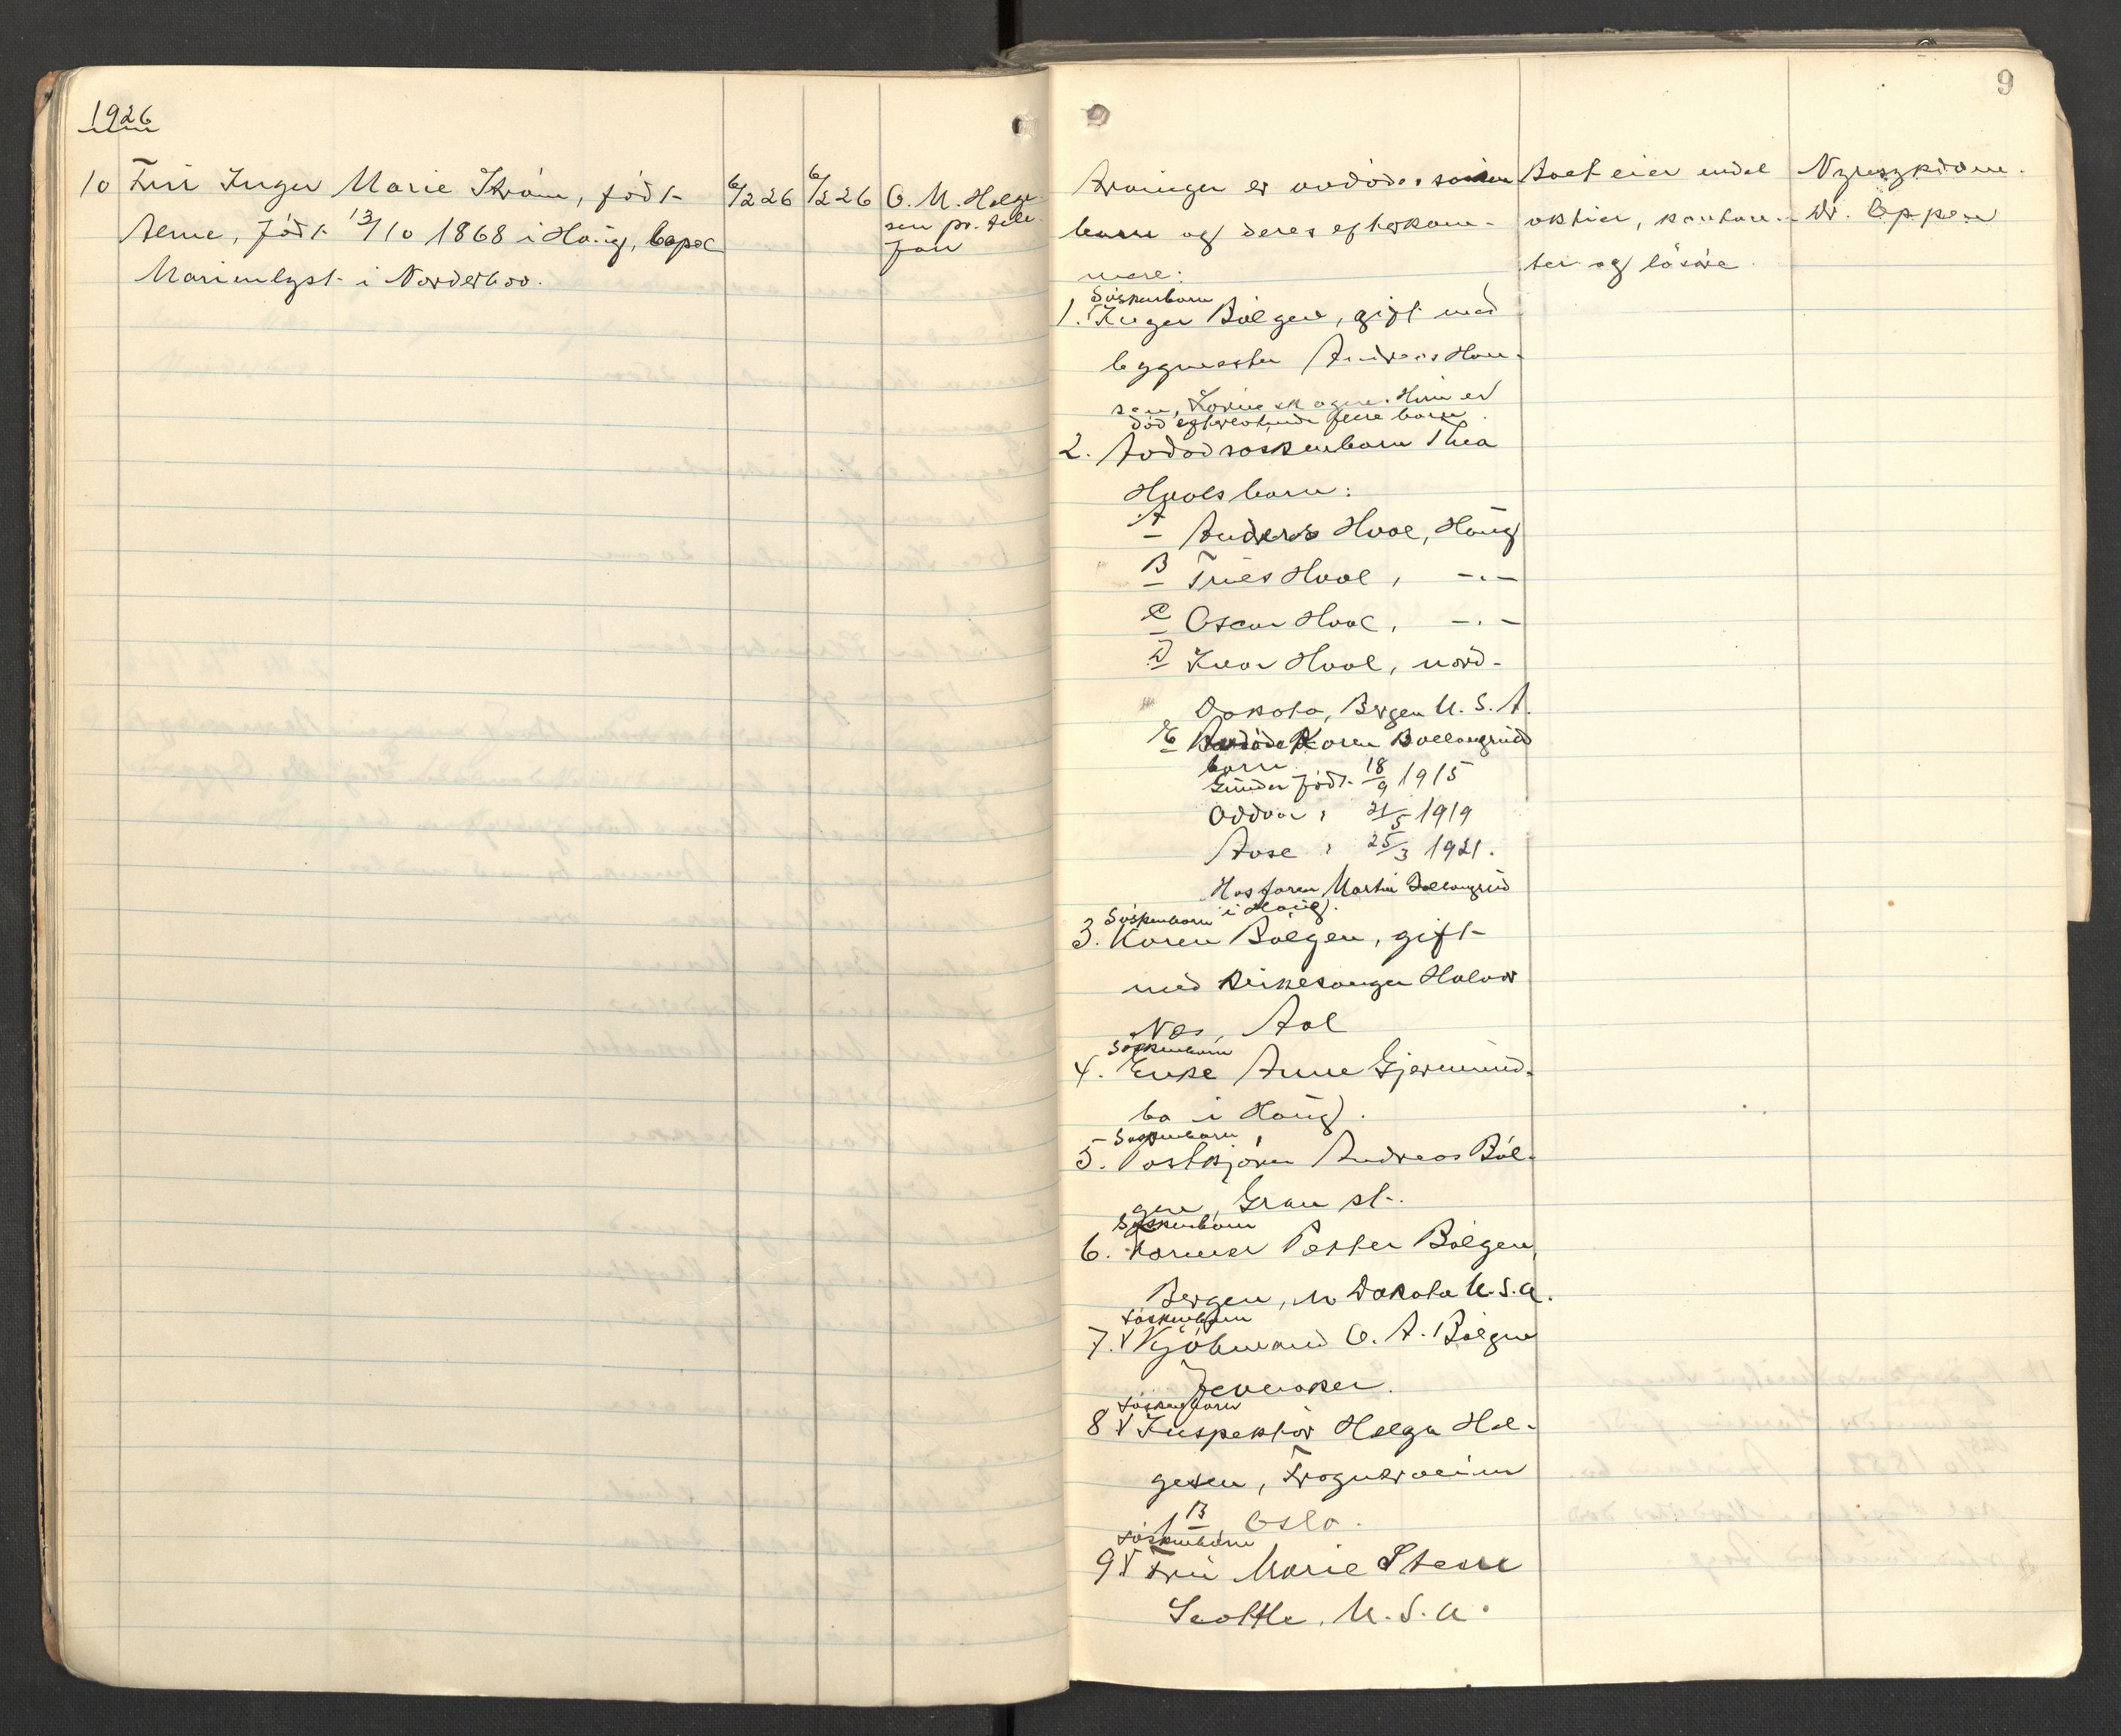 1926
10 Fru Inger Marie Strøm, født
Aerne, født 13/10 1868 i Haug, bopæl
Marienlyst i Norderhov.
6/2 26
6/2 26
O. M. Helge-
sen pr. tele-
fon
9
Arvinger er avdødes søsken-
barn og deres efterkom-
mere:
Søskenbarn
1. Inger Bølgen, gift med
byggmester Andreas Han-
sen, . Hun er
død efterlatende flere barn.
2. Avdød søskenbarn Thea
Hvals barn:
A Anders Hval, Haug
B Truls Hval, -"-
C Oscar Hval, -"-
D Ivar Hval, nord-
Dakota, Bergen U. S. A.
E Avdøde Karen Bollangrud
barn
Gunder født 18/9 1915
Oddvar " 21/5 1919
Aase " 25/3 1921.
Hos faren Martin Bollangrud
i Haug.
Søskenbarn
3. Karen Bølgen, gift
med kirkesanger Halvor
Næs, Aal
Søskenbarn
4. Enke Anne Gjermund-
bo i Haug.
Søskenbarn
5. Postkjører Andreas Bøl-
gen, Gran st.
Søskenbarn
6. Farmer Petter Bølgen,
Bergen, N Dakota U.S.A.
Søskenbarn
7. Kjøbmand O. A. Bølgen
Jevnaker.
Søskenbarn
8 Inspektør Helge Hel-
gesen, Frognerveien
1 B Oslo.
Søskenbarn
9 Fru Marie Steen
Seattle, U. S. A.
Boet eier endel
aktier, kontan-
ter og løsøre.
Nyresykdom.
Dr. Oppen